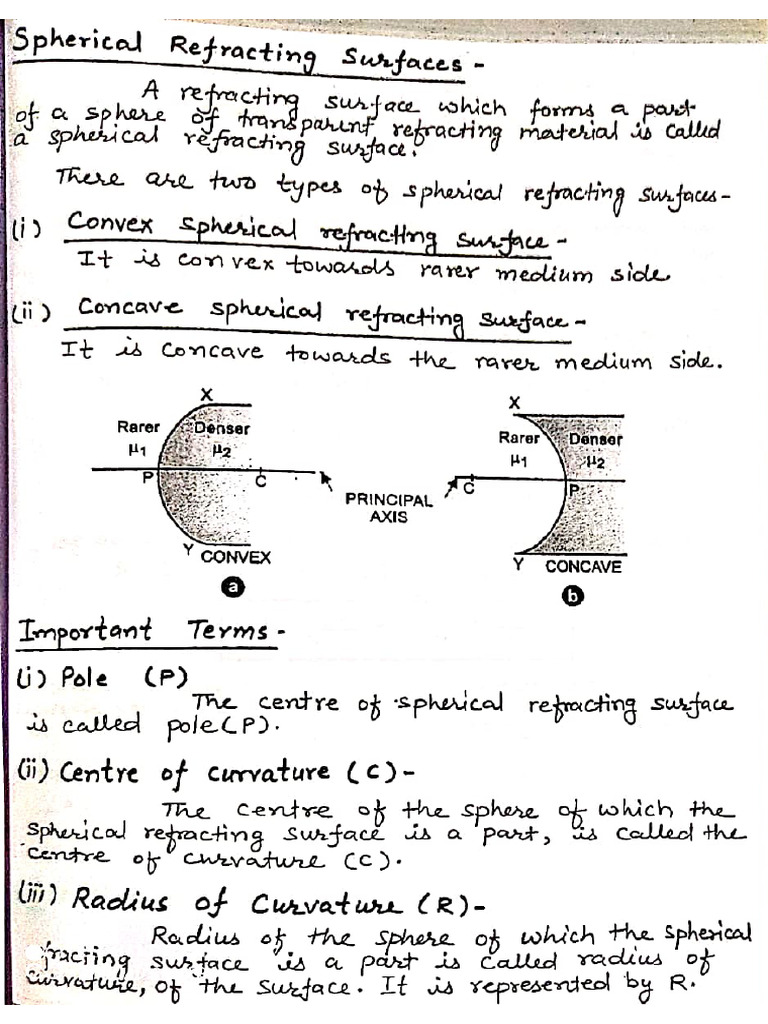 Spherical Refracting Surfaces -
A refracting surface which forms a part
of a sphere of transparent refracting material is called
a spherical refracting surface.
There are two types of spherical refracting surfaces -
(i) Convex spherical refracting surface -
It is convex towards rarer medium side.
(ii) Concave spherical refracting surface -
It is concave towards the rarer medium side.
X
Rarer Denser
μ1 μ2
P C
Y CONVEX
a
PRINCIPAL
AXIS
X
Rarer Denser
μ1 μ2
C P
Y CONCAVE
b
Important Terms -
(i) Pole (P)
The centre of spherical refracting surface
is called pole (P).
(ii) Centre of curvature (C) -
The centre of the sphere of which the
spherical refracting surface is a part, is called the
centre of curvature (C).
(iii) Radius of Curvature (R) -
Radius of the sphere of which the spherical
fracting surface is a part is called radius of
curvature, of the surface. It is represented by R.